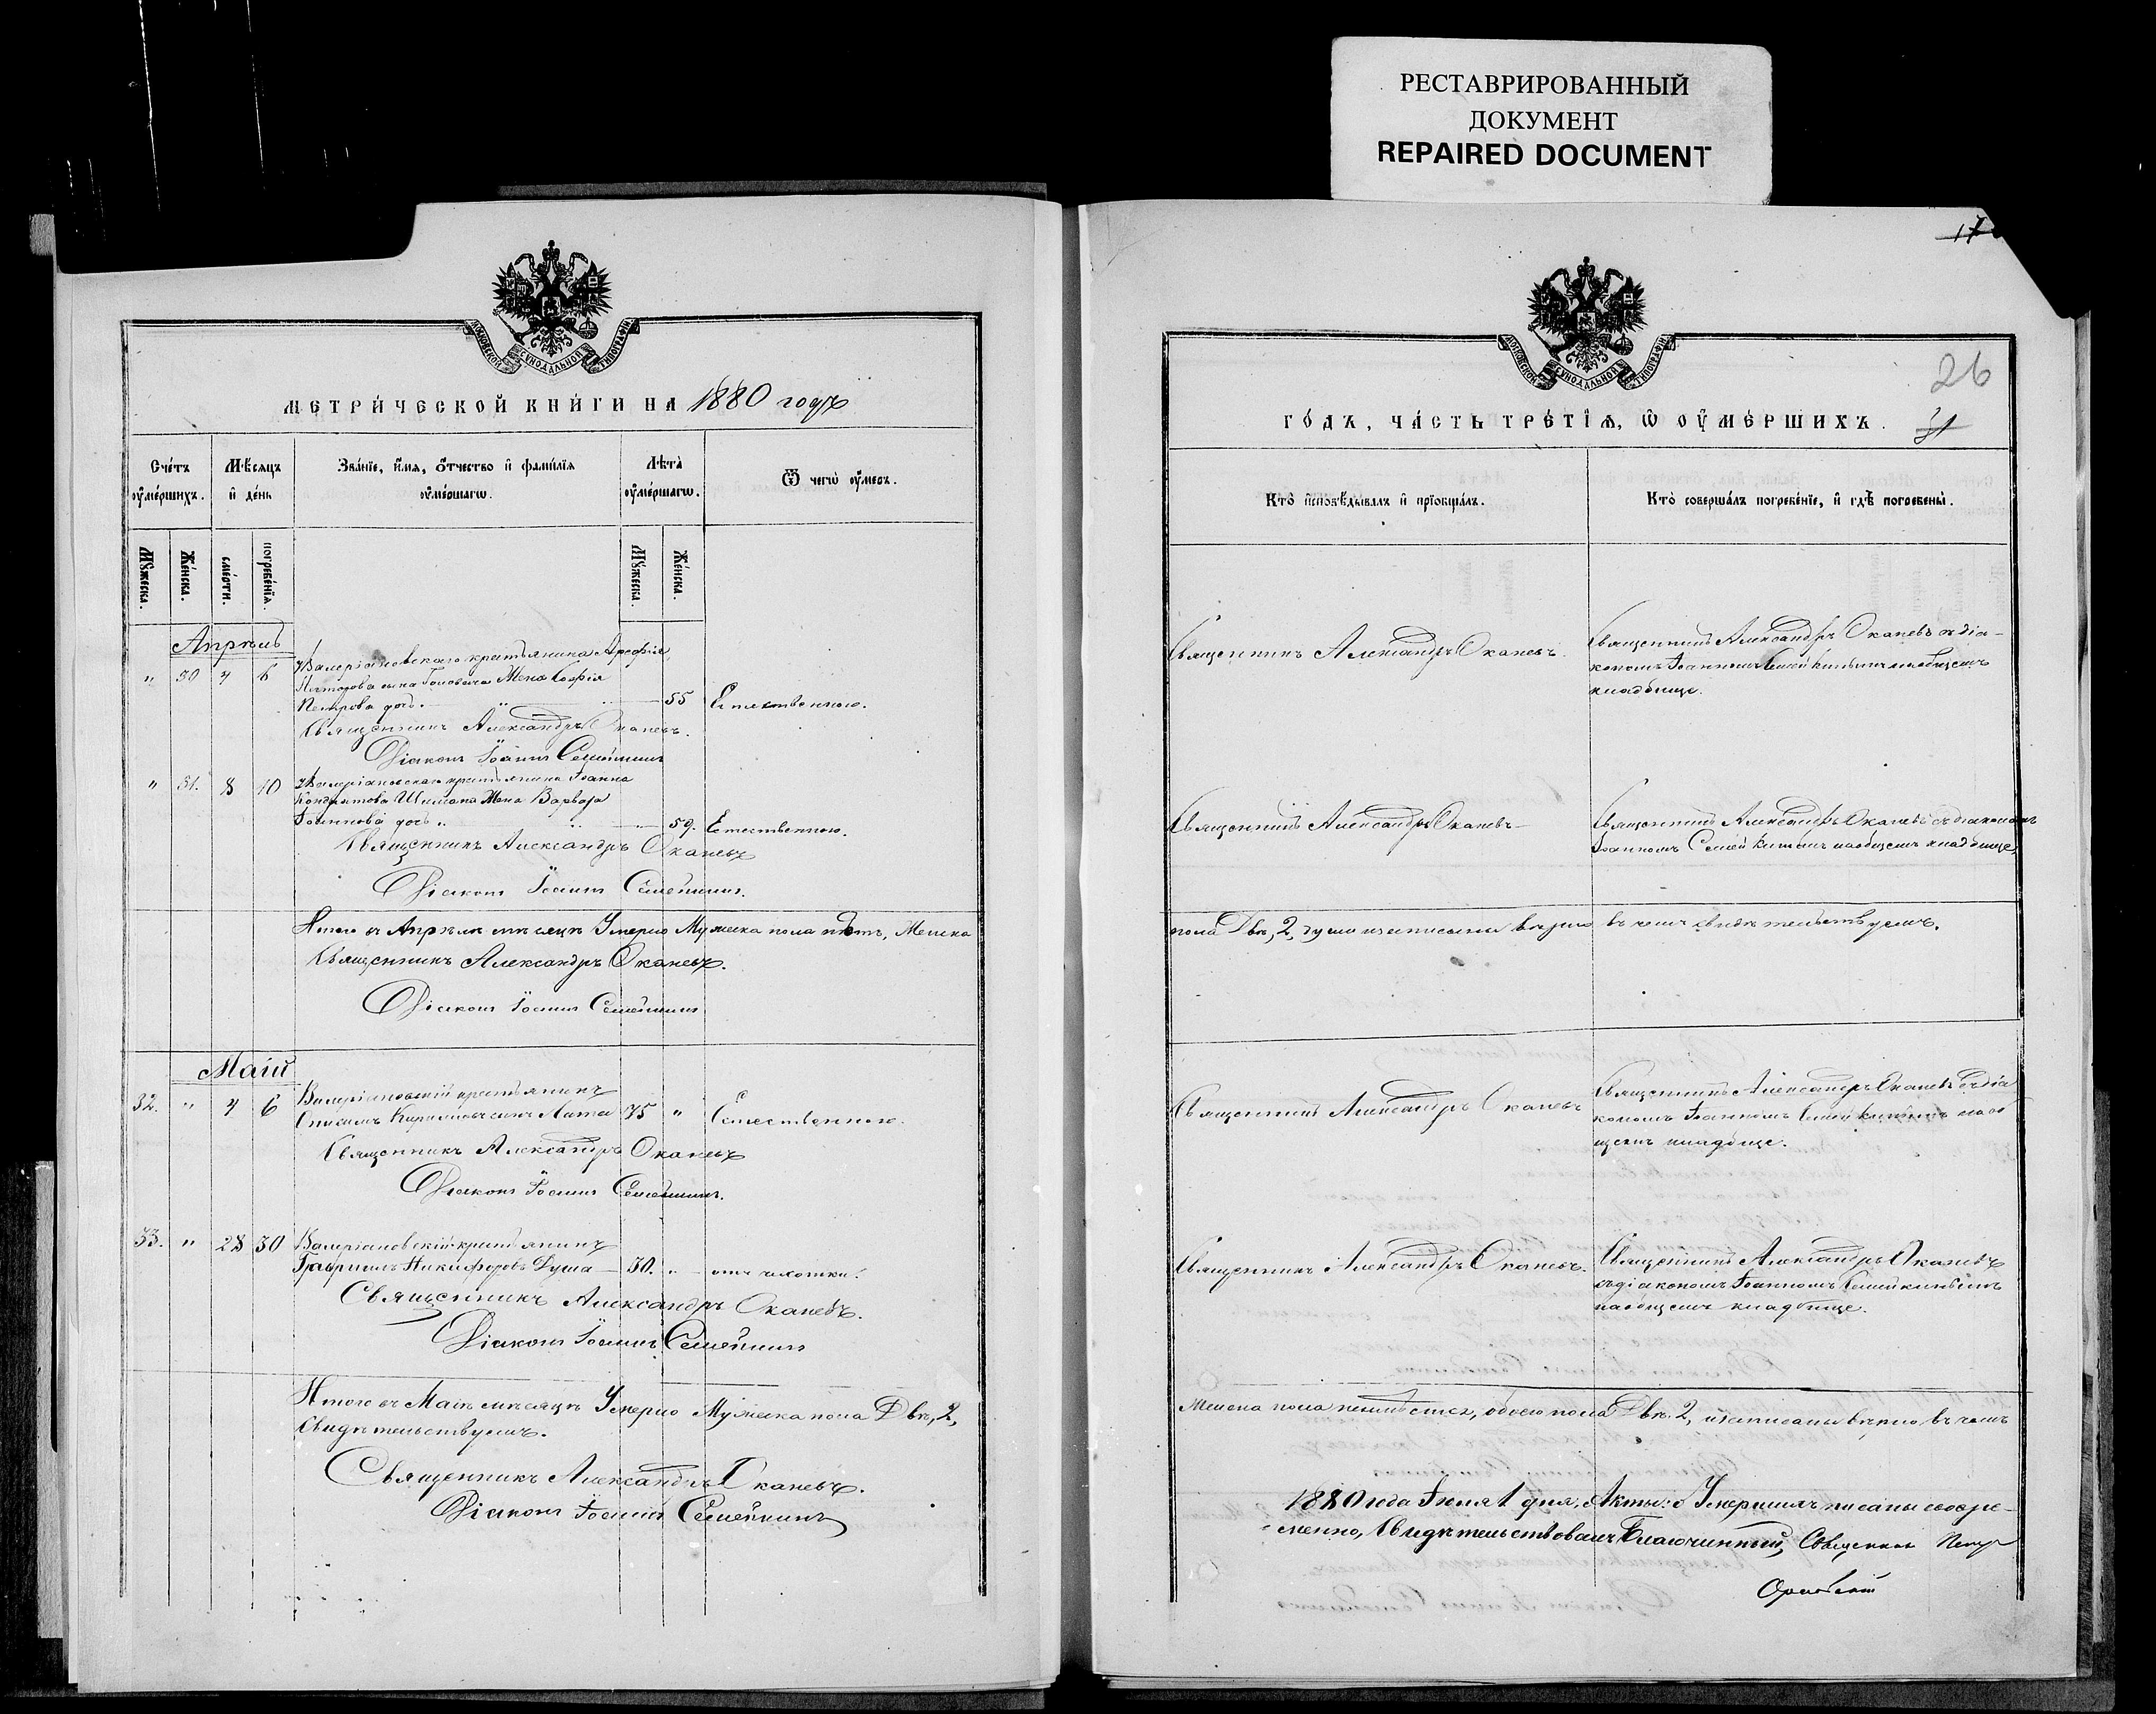 РЕСТАВРИРОВАННЫЙ
ДОКУМЕНТ
REPAIRED DOCUMENT
17
МОСКОВСКОЙ СУНОДАЛЬНОЙ ТИПОГРАФІИ
МЕТРИ́ЧЕСКОЙ КНИ́ГИ НА 1880 годъ
Сче́тъ ᲂу҆ме́ршихъ.
Мѣ́сяцъ и҆ де́нь
Зва́нїе, и҆́мя, ѻ҆́тчество и҆ фами́лїя ᲂу҆ме́ршагѡ.
Лѣ́та ᲂу҆ме́ршагѡ.
Ѿ чегѡ̀ ᲂу҆́меръ.
Мꙋ́жеска.
Же́нска.
сме́рти.
погребе́нїя.
Мꙋ́жеска.
Же́нска.
Апрѣль
" 30 4 6 Валеріановскаго крестьянина
жена Софія
Петрова дочь. 55 Естественною.
Священникъ Александръ Оканевъ.
Діаконъ Іоаннъ Семейкинъ
" 31. 8 10 Валеріановскаго крестьянина Іоанна
Кондратова Шимана жена Варвара
Іоаннова дочь 59. Естественною.
Священникъ Александръ Оканевъ
Діаконъ Іоаннъ Семейкинъ.
Итого въ Апрѣлѣ мѣсяцѣ Умерло Мужеска пола нѣтъ, Женска
Священникъ Александръ Оканевъ.
Діаконъ Іоаннъ Семейкинъ
Маій
32. " 4 6 Валеріановскій крестьянинъ
Кирилловъ сынъ 75 " Естественною.
Священникъ Александръ Оканевъ
Діаконъ Іоаннъ Семейкинъ.
33. " 28 30 Валеріановскій крестьянинъ
Гавріилъ Никифоровъ Душа 30. " отъ чахотки.
Священникъ Александръ Оканевъ.
Діаконъ Іоаннъ Семейкинъ
Итого въ Маіѣ мѣсяцѣ Умерло Мужеска пола Двѣ, 2,
Свидѣтельствуемъ.
Священникъ Александръ Оканевъ.
Діаконъ Іоаннъ Семейкинъ
МОСКОВСКОЙ СУНОДАЛЬНОЙ ТИПОГРАФІИ
26
ГО́ДЪ, ЧА́СТЬ ТРЕ́ТЇѦ, Ѡ҆ ОУ҆МЕ́РШИХЪ.
31
Кто̀ и҆сповѣ́дывалъ и҆ прїѡбща́лъ.
Кто̀ соверша́лъ погребе́нїе, и҆ гдѣ̀ погребены̀.
Священникъ Александръ Оканевъ.
Священникъ Александръ Оканевъ съ діа-
кономъ Іоанномъ Семейкинымъ на общемъ
кладбище.
Священникъ Александръ Оканевъ
Священникъ Александръ Оканевъ съ діакономъ
Іоанномъ Семейкинымъ на общемъ кладбище.
пола Двѣ, 2, записаны вѣрно въ чемъ свидѣтельствуемъ.
Священникъ Александръ Оканевъ
Священникъ Александръ Оканевъ съ діа
кономъ Іоанномъ Семейкинымъ на об
щемъ кладбище.
Священникъ Александръ Оканевъ.
Священникъ Александръ Оканевъ
съ діакономъ Іоанномъ Семейкинымъ
на общемъ кладбище.
Женска пола неимѣется, обоего пола Двѣ. 2, и записаны вѣрно въ чемъ
1880 года Іюля 1 дня, Акты о Умершихъ писаны своевре-
менно, Свидѣтельствовалъ Благочинный, Священникъ Петръ
Орловскій